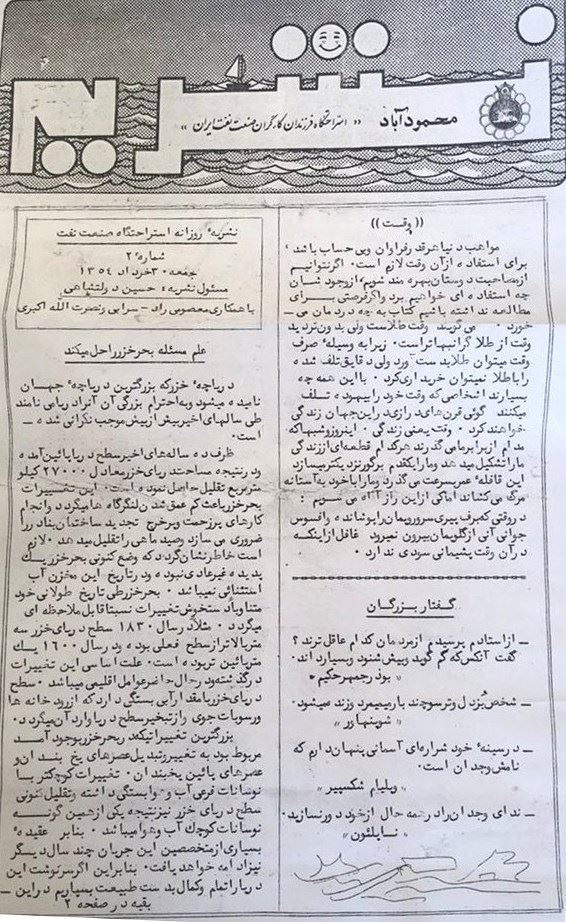 نشریه
محمودآباد «استراحتگاه فرزندان کارگران صنعت نفت ایران»
نشریهٔ روزانه استراحتگاه صنعت نفت
شماره ۲
جمعه ۳۰ خرداد ۱۳۵۴
مسئول نشریه: حسین دولتشاهی
با همکاری معصومی راد - سرابی ونصرت الله اکبری
علم مسئله بحرخزرراحل میکند
دریاچهٔ خزرکه بزرگترین دریاچهٔ جهان
نامیده میشود وبه احترام بزرگی آن آنرا دریا می نامند
طی سالهای اخیربیش ازپیش موجب نگرانی شده
است.
ظرف ده ساله های اخیرسطح دریاپائین آمده
ودرنتیجه مساحت دریای خزرمعادل ۲۷۰۰۰ کیلو
مترمربع تقلیل حاصل نموده است. این تغییرات
بحرخزرباعث کم عمق شدن لنگرگاه ها میگردد وانجام
کارهای پرزحمت وپرخرج تجدید ساختمان بنادررا
ضروری می سازد وصید ماهی راتقلیل میدهد. لازم
است خاطرنشان گردد که وضع کنونی بحرخزریک
پدیده غیرعادی نبوده ودرتاریخ این مخزن آب
استثنائی نمیباشد. بحرخزرطی تاریخ طولانی خود
متناوباً دستخوش تغییرات نسبتاً قابل ملاحظه ای
میگردد. مثلا درسال ۱۸۳۰ سطح دریای خزرسه
مترباالاترازسطح فعلی بوده ودرسال ۱۶۰۰ یک
مترپائین تربوده است. علت اساسی این تغییرات
درگذشته ودرحال حاضرعوامل اقلیمی میباشد. سطح
دریای خزربا مقدارآبی بستگی دارد که ازرود خانه ها
ورسوبات جوی وازتبخیرسطح دریا وارد آن میگردد.
بزرگترین تغییراتیکه دربحرخزربوجود آمد
مربوط بود به تغییروتبدیل عصرهای یخ بندان و
عصرهای پائین یخبندان. تغییرات کوچکتربا
نوسانات فرعی آب وهوابستگی داشته وتقلیل کنونی
سطح دریای خزرنیزنتیجه یکی ازهمین گونه
نوسانات کوچک آب وهوامیباشد. بنابر عقیدهٔ
بسیاری ازمتخصصین این جریان چند سال دیگر
نیزادامه خواهد یافت. بنابراین اگرسرنوشت این
دریاراتمام وکمال بدست طبیعت بسپاریم دراین -
بقیه در صفحه ۲
((وقت))
مواهب دنیا هرقدرفراوان وبی حساب باشد،
برای استفاده ازآن وقت لازم است. اگرنتوانیم
ازمصاحبت دوستان بهره مند شویم، ازوجود شان
چه استفاده ای خواهیم برد واگرفرصتی برای
مطالعه نداشته باشیم کتاب به چه دردمان می -
خورد. می گویند وقت طلاست ولی بدون تردید
وقت ازطلا گرانبهاتراست. زیرا به وسیلهٔ صرف
وقت میتوان طلابدست آورد ولی دقایق تلف شده
راباطلا نمیتوان خریداری کرد. با این همه چه
بسیارند اشخاصی که وقت خود رابیهوده تلف
میکنند گوئی قرن های درازی دراین جهان زندگی
خواهند کرد. وقت یعنی زندگی. این روزوشبها که
مدام ازبرابرما میگذرند هرکدام قطعه ای اززندگی
ماراتشکیل میدهد ومارایکقدم بگورنزدیکترمیسازد.
این قافلهٔ عمربسرعت می گذرد ومارابا خود به آستانه
مرگ می کشاند اما کی ازاین راز آگاه می شویم:
دروقتی که برف پیری سرورویمان راپوشانده وافسوس
جوانی آنی ازگلویمان بیرون نمیرود غافل ازاینکه
درآن وقت پشیمانی سودی ندارد.
گفتار بزرگان
ـ ازاستادم پرسیدم ازمردمان کدام عاقل ترند؟
گفت آنکس که کم گوید وبیش شنود وبسیاردانه.
« بوذرجمهرحکیم »
ـ شخص بُزدل وترسوچند بارمیمیرد وزنده میشود.
« شوپنهاور »
ـ درسینهٔ خود شراره ای آسمانی پنهان داریم که
نامش وجدان است.
« ویلیام شکسپیر »
ـ ندای وجدان رادرهمه حال ازخود دورنسازید.
« ناپلئون »